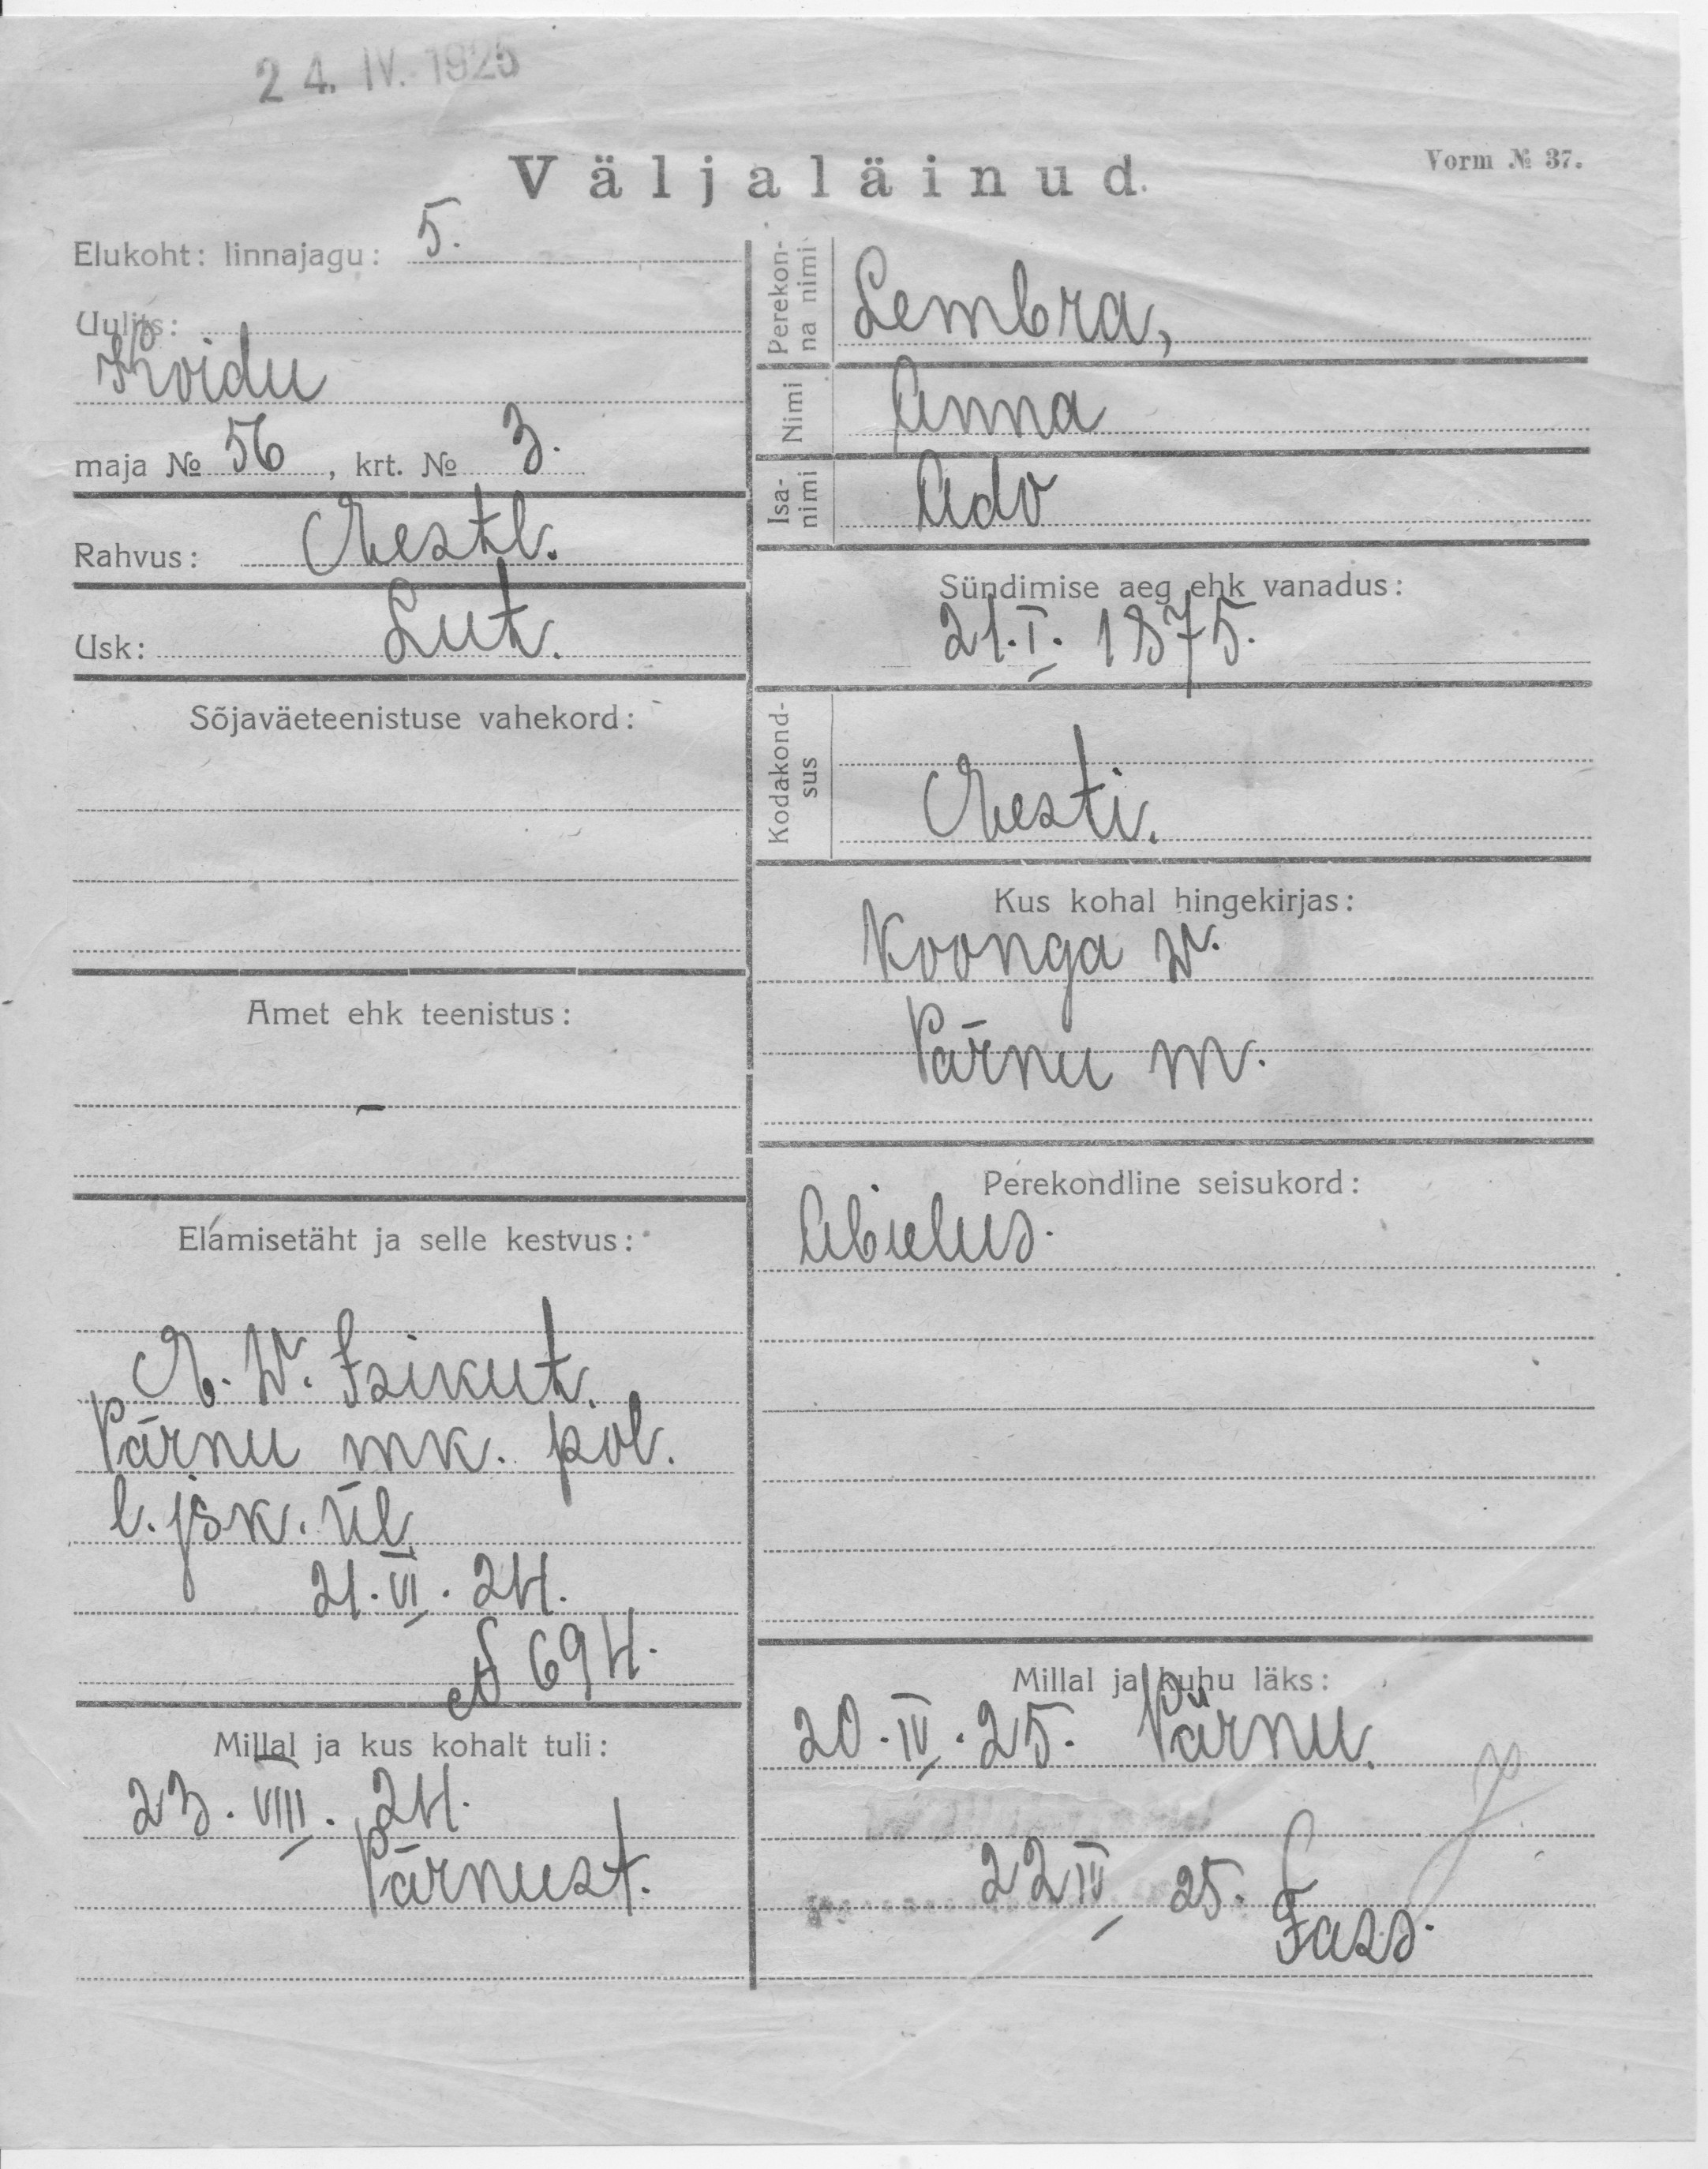 24. IV. 1925
Väljaläinud.
Vorm № 37.
Elukoht: linnajagu: 5.
Uulits:
Koidu
maja № 56, krt. № 3.
Rahvus: Eestl.
Usk: Lut.
Sõjaväeteenistuse vahekord:
Amet ehk teenistus:
–
Elamisetäht ja selle kestvus:
E. W. Isikut.
Pärnu mk. pol.
l. jsk. ül.
21. VI. 24.
№ 694.
Millal ja kus kohalt tuli:
23. VIII. 24.
Pärnust.
Perekonna nimi
Lembra,
Nimi
Anna
Isanimi
Ado
Sündimise aeg ehk vanadus:
21. I. 1875.
Kodakondsus
Eesti.
Kus kohal hingekirjas:
Koonga w.
Pärnu m.
Perekondline seisukord:
Abielus.
Millal ja kuhu läks:
20. IV. 25. Pärnu.
22 IV 25.